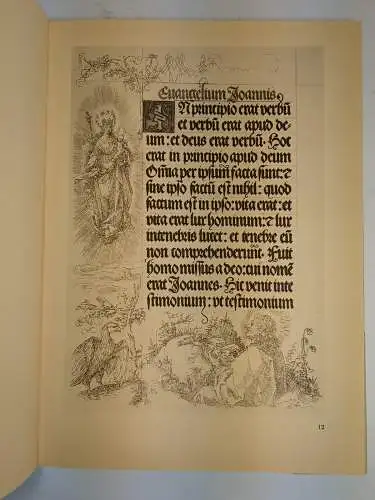 Euangelium Joannis
IN principio erat verbū
et verbū erat apud de-
um: et deus erat verbū. Hoc
erat in principio apud deum
Omnia per ipsum facta sunt: &
sine ipso factū est nihil: quod
factum est in ipso: vita erat: et
vita erat lux hominum: & lux
in tenebris lucet: et tenebre eū
non comprehenderunt. Fuit
homo missus a deo: cui nomē
erat Joannes. Hic venit in te
stimonium: vt testimonium
12